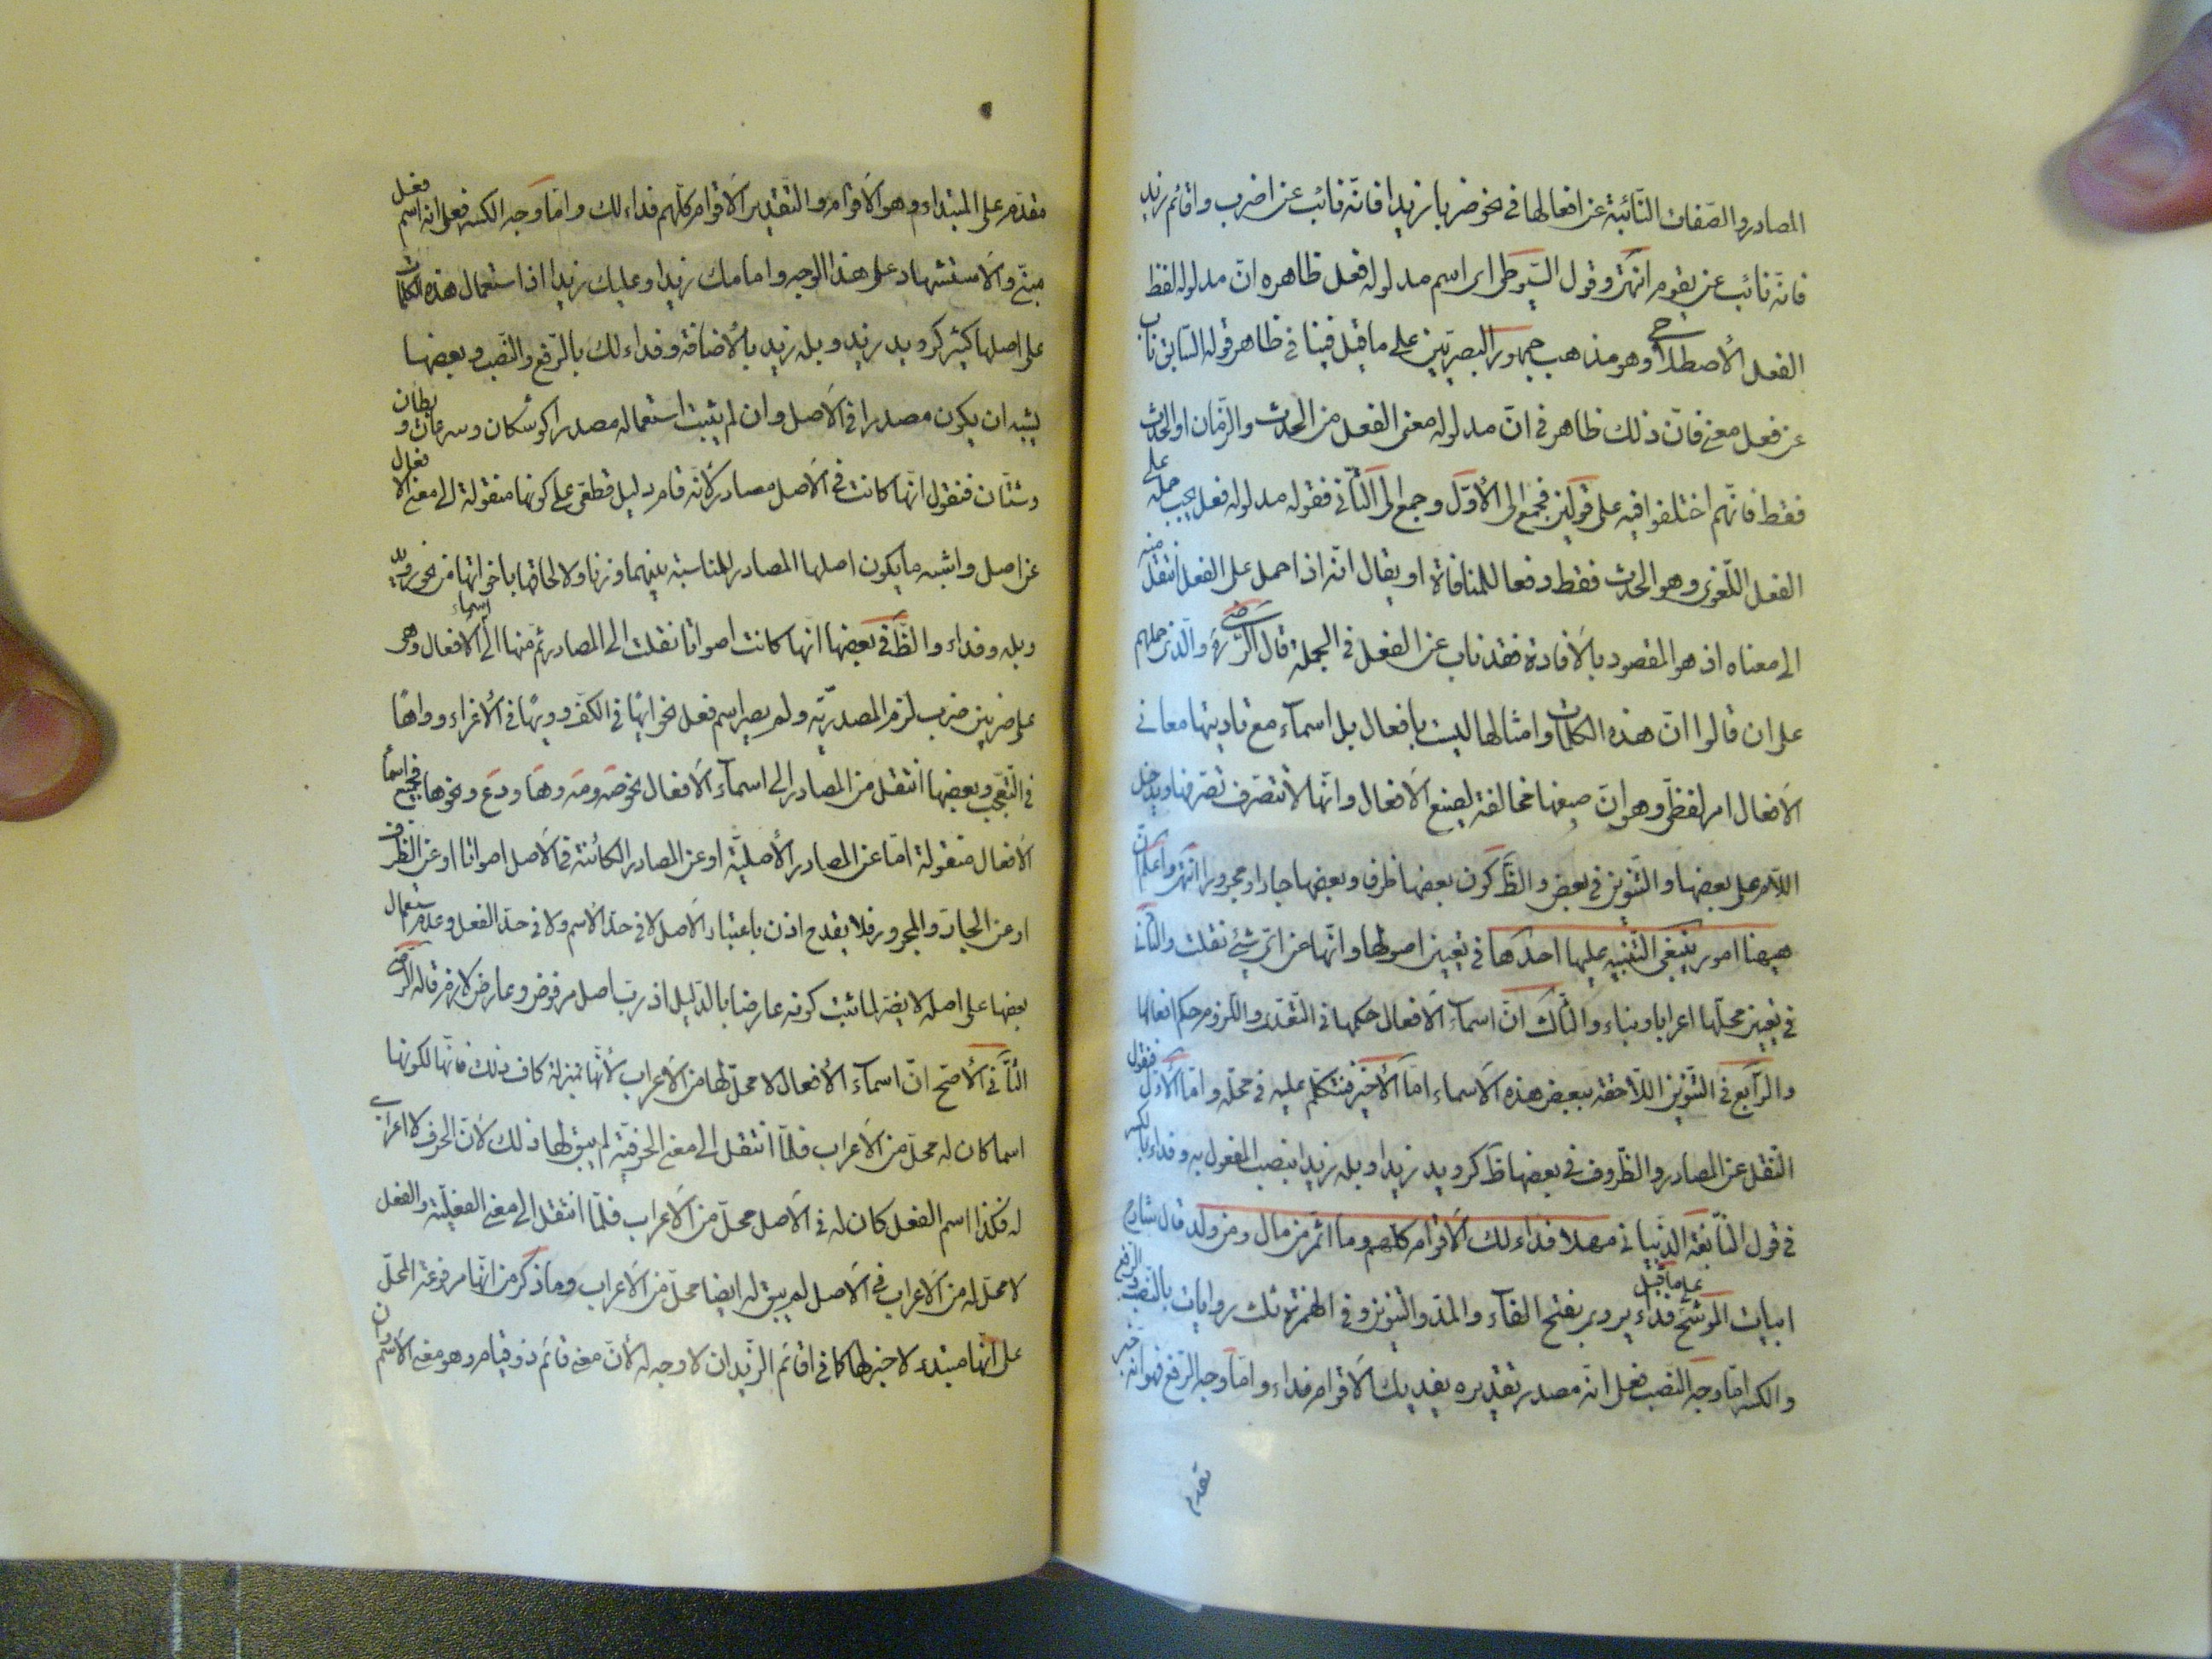 المصادر والصّفات النّائبة عن افعالها فى نحو ضربا زيدا فانّه نائب عن اضرب واقائم زيد
فانّه نائب عن يقوم انتهى وقول السّيوطى اى اسم مدلوله فعل ظاهره انّ مدلوله لفظ
الفعل الاصطلاحى وهو مذهب جمهور البصريّين على ما قيل فينا فى ظاهر قوله السّابق ناب
عن فعل معنى فانّ ذلك ظاهر فى انّ مدلوله معنى الفعل من الحدث والزّمان او الحدث
فقط فانّهم اختلفوا فيه على قولين فجمع الى الاوّل وجمع الى الثّانى فقوله مدلوله فعل يجب حمله على
الفعل اللّغوى وهو الحدث فقط دفعا للمنافاة او يقال انّه اذا حمل على الفعل انتقل منه
الى معناه اذ هو المقصود بالافادة فقد ناب عن الفعل فى الجملة قال الرّضىّ ره والّذى حملهم
على ان قالوا انّ هذه الكلمات وامثالها ليست بافعال بل اسمآء مع تاديتها معانى
الافعال امر لفظىّ وهو انّ صيغها مخالفة لصيغ الافعال وانّها لا تتصّرف تصرّفها ويدخل
اللّام على بعضها والتّنوين فى بعض والظّ كون بعضها ظرف وبعضها جارا ومجرورا انتهى واعلم انّ
ههنا امور ينبغى التّنبيه عليها احدها فى تعيين اصولها وانّها عن اىّ شئ نقلت والثّانى
فى تعيين محلّها اعرابا وبناء والثّالث انّ اسمآء الافعال حكمها فى التّعدّى واللّزوم حكم افعالها
والرّابع فى التّنوين اللّاحقة ببعض هذه الاسماء امّا الاخير فنتكلّم عليه فى محلّه وامّا الاوّل فنقول
النّقل عن المصادر والظّروف فى بعضها ظ كرويد زيدا وبله زيدا بنصب المفعول به وفداء بالكسر
فى قول النّابغة الذّبيانى مهلا فداء لك الاقوام كلهم وما اثمّر من مال ومن ولد قال شارح
ابيات الموشّح فداء يروى على ما قيل بفتح الفآء والمدّ والتّنوين وفى الهمزة ثلث روايات بالنّصب والرفع
والكسر امّا وجه النّصب فعلى انّه مصدر تقديره يفديك الاقوام فداء وامّا وجه الرّفع فهو انّه خبر
مقدّم
مقدّم على المبتداء وهو الاقوام والتّقدير الاقوام كلّهم فداء لك وامّا وجه الكسر فعلى انه اسم فعل
مبنىّ والاستشهاد على هذا الوجه وامامك زيدا وعليك زيدا اذ استعمال هذه الكلمات
على اصلها كثير كرويد زيد وبله زيد بالاضافة وفداء لك بالرّفع والنّصب وبعضها
يشبه ان يكون مصدرا فى الاصل وان لم يثبت استعماله مصدرا كوشكان وسرعان وبطان
وشتّان فنقول انّها كانت فى الاصل مصادر لانّه قام دليل قطعىّ على كونها منقولة الى معنى الافعال
عن اصل واشبه ما يكون اصلها المصادر للمناسبة بينهما وزنا ولالحاقها باخواتها من نحو رويد
وبله وفداء والظّ فى بعضها انّها كانت اصواتا نقلت الى المصادر ثمّ منها الى اسماء الافعال وهو
على ضربين ضرب لزم المصدريّة ولم يصر اسم فعل نحو ايهًا فى الكفّ وويهًا فى الاغراء وواهًا
فى التّعجّب وبعضها انتقل من المصادر الى اسمآء الافعال نحو صَه ومَه وهَا ودَع ونحوها فجميع اسمآء
الافعال منقولة امّا عن المصادر الاصليّة او عن المصادر الكائنة فى الاصل اصواتا او عن الظّرف
او عن الجارّ والمجرور فلا يقدح اذن باعتبار الاصل لا فى حدّ الاسم ولا فى حدّ الفعل وعدم استعمال
بعضها على اصله لا يضرّ لما ثبت كونه عارضا بالدّليل اذ ربّ اصل مرفوض وعارض لازم قاله الرّضى
الثّانى الاصحّ انّ اسمآء الافعال لا محلّ لها من الاعراب لانّها بمنزلة كاف ذلك فانّها لكونها
اسما كان له محلّ من الاعراب فلمّا انتقل الى معنى الحرفيّة لم يبق لها ذلك لانّ الحرف لا اعراب
له فكذا اسم الفعل كان له فى الاصل محلّ من الاعراب فلمّا انتقل الى معنى الفعليّة والفعل
لا محلّ له من الاعراب فى الاصل لم يبق له ايضا محلّ من الاعراب وما ذكر من انّها مرفوعة المحلّ
على انّها مبتدء لا خبر لها كما فى اقائم الزّيدان لا وجه له لانّ معنى قائم ذو قيام وهو معنى الاسم وان